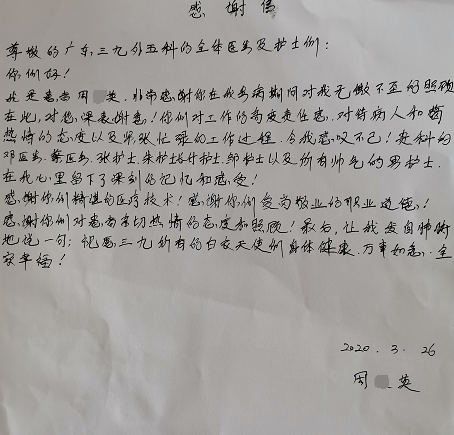 感谢信
尊敬的广东三九外五科的全体医生及护士们:
你们好!
我是患者周英. 非常感谢你在我患病期间对我无微不至的照顾
在此,对您深表谢意!你们对工作的高度责任感. 对待病人和蔼
热情的态度以及紧张忙碌的工作过程. 令我感叹不已!贵科的
邓医生. 医生. 张护士. 朱护士 付护士. 邹护士以及所有帅气的男护士.
在我心里留下了深刻的记忆和感受!
感谢你们精湛的医疗技术!感谢你们爱岗敬业的职业道德!
感谢你们对患者亲切热情的态度和照顾!最后,让我发自肺腑
地说一句:祝愿三九所有的白衣天使们身体健康. 万事如意. 全
家幸福!
2020. 3. 26
周英